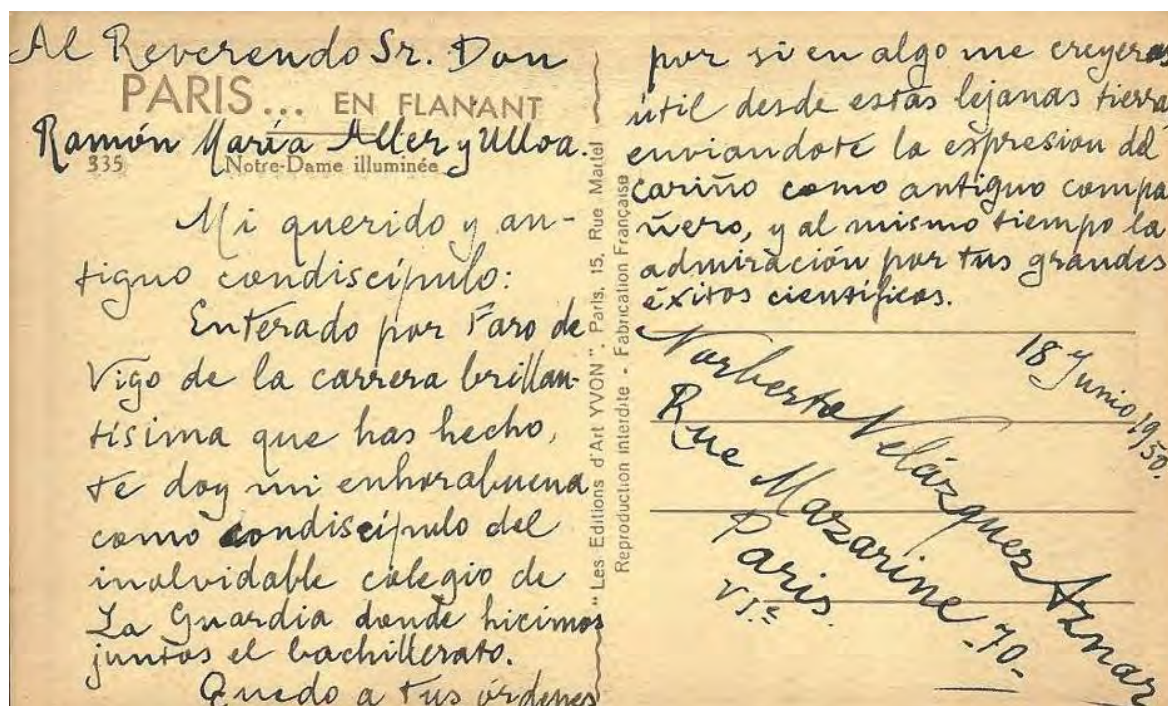 Al Reverendo Sr. Don
PARIS... EN FLANANT
Ramón María Aller y Ulloa.
335 Notre-Dame illuminée
Mi querido y an-
tiguo condiscípulo:
Enterado por Faro de
Vigo de la carrera brillan-
tísima que has hecho,
te doy mi enhorabuena
como condiscípulo del
inolvidable colegio de
La Guardia donde hicimos
juntos el bachillerato.
Quedo a tus órdenes
"Les Editions d'Art YVON". Paris, 15, Rue Martel
Reproduction interdite - Fabrication Française
por si en algo me creyeras
útil desde estas lejanas tierra
enviandote la expresion del
cariño como antiguo compa
ñero, y al mismo tiempo la
admiración por tus grandes
éxitos científicos.
18 Junio 1950.
Norberto Velázquez Aznar
Rue Mazarine -70-
Paris.
VIe